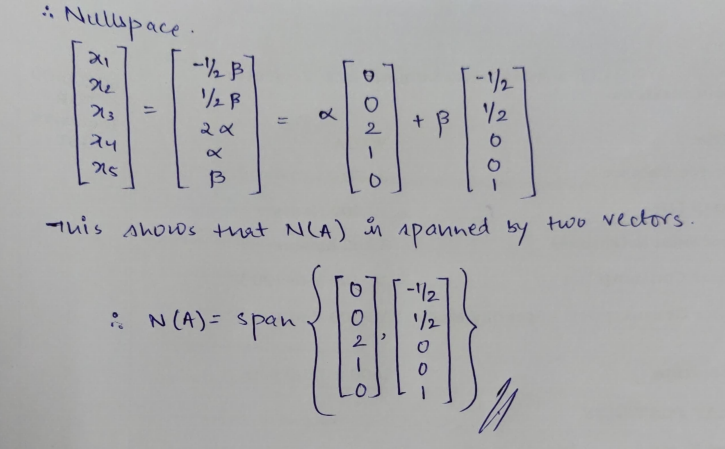 ∴ Nullspace.
[x1 x2 x3 x4 x5] = [-1/2 β 1/2 β 2α α β] = α [0 0 2 1 0] + β [-1/2 1/2 0 0 1]
This shows that N(A) is spanned by two vectors.
∴ N(A) = span { [0 0 2 1 0], [-1/2 1/2 0 0 1] }